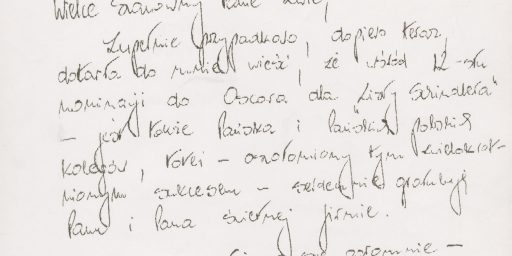 Wielce Szanowny Panie Lwie,
Zupełnie przypadkowo, dopiero teraz,
dotarła do mnie wieść, że wśród 12-stu
nominacji do Oscara dla "Listy Schindlera"
– jest także Pańska i Pańskich polskich
kolegów, toteż – oszołomiony tym wielokrot-
nionym sukcesem – serdecznie gratuluję
Panu i Pana świetnej firmie.
ogromnie –